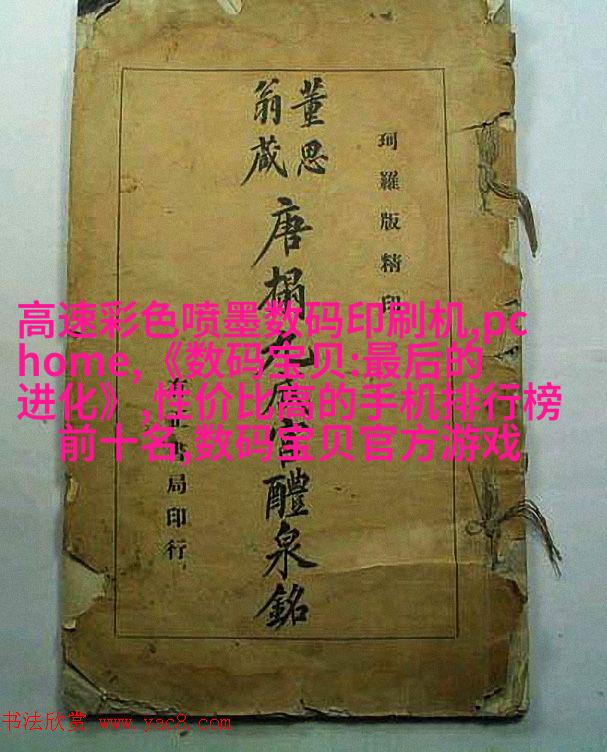 珂羅版精印
董思
翁藏
唐搨九成宮醴泉銘
書局印行
高速彩色喷墨数码印刷机,pc
home,《数码宝贝:最后的
进化》,性价比高的手机排行榜
前十名,数码宝贝官方游戏
书法欣赏 www.yac8.com